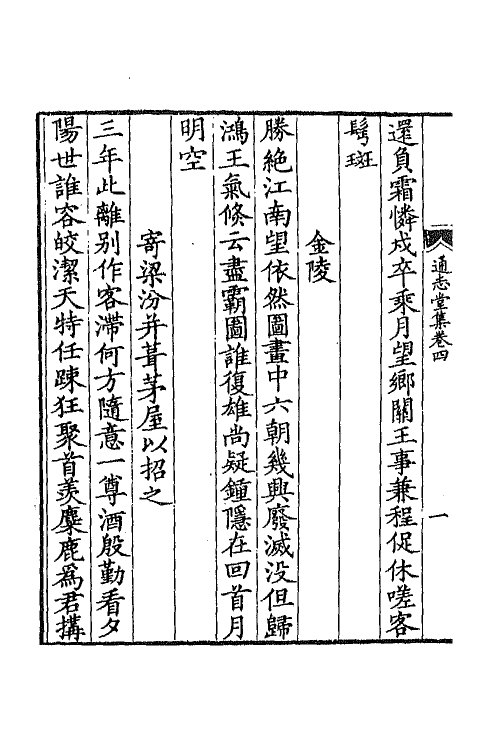 通志堂集卷四
一
還負霜憐戍卒乘月望鄉關王事兼程促休嗟客
鬂斑
金陵
勝絶江南望依然圖畫中六朝幾興廢滅没但歸
鴻王氣倏云盡霸圖誰復雄尚疑鍾隱在回首月
明空
寄梁汾并葺茅屋以招之
三年此離别作客滯何方隨意一尊酒殷勤看夕
陽世誰容皎潔天特任踈狂聚首羨麋鹿爲君搆